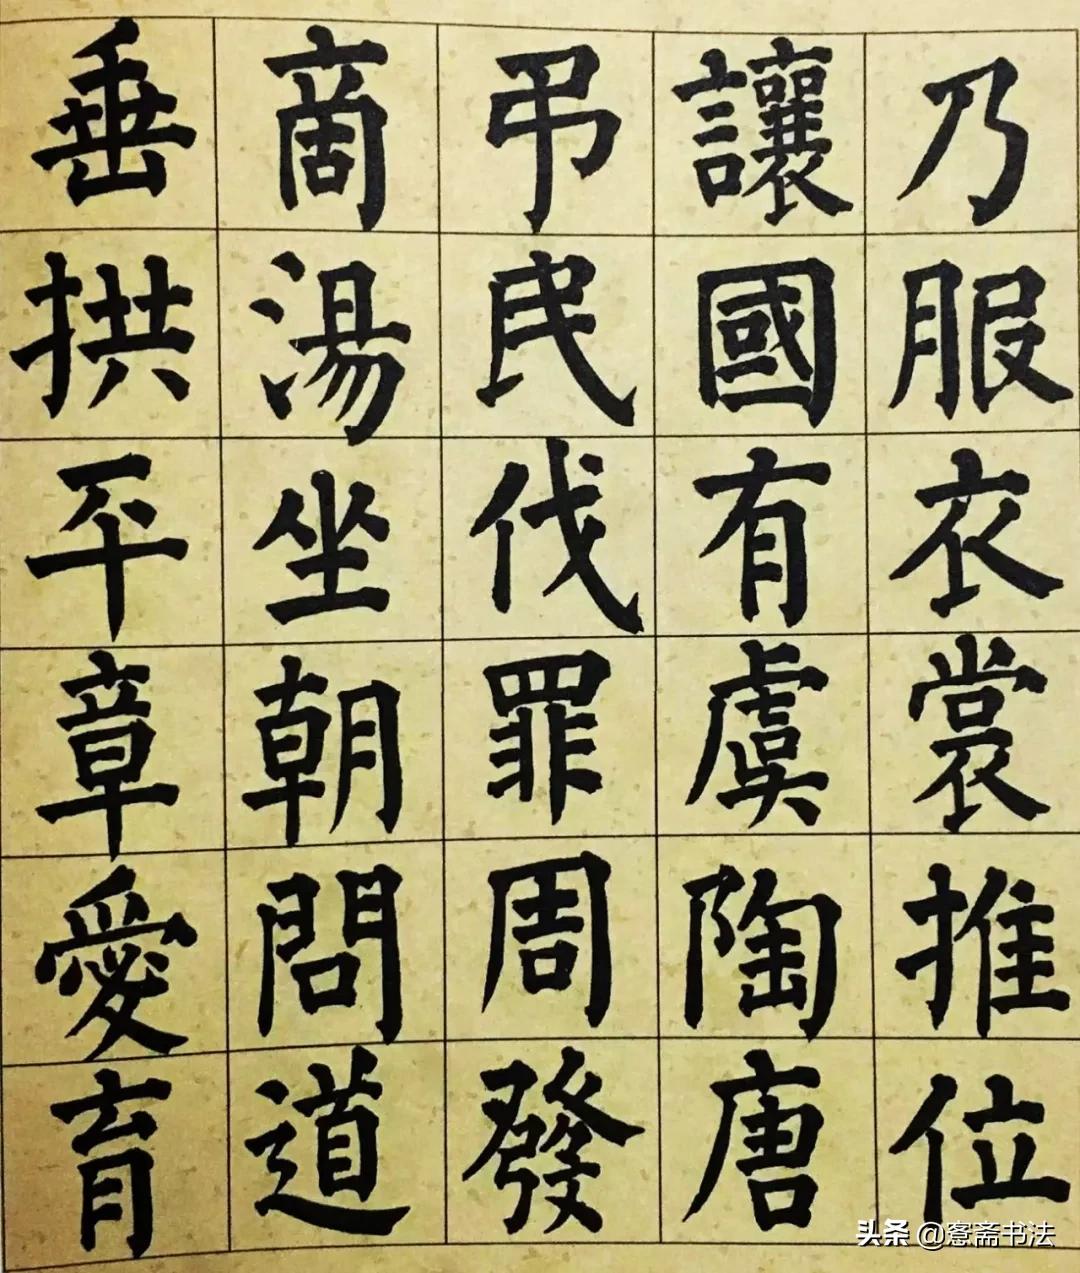 乃服衣裳推位
讓國有虞陶唐
弔民伐罪周發
商湯坐朝問道
垂拱平章愛育
头条 @窓斋书法